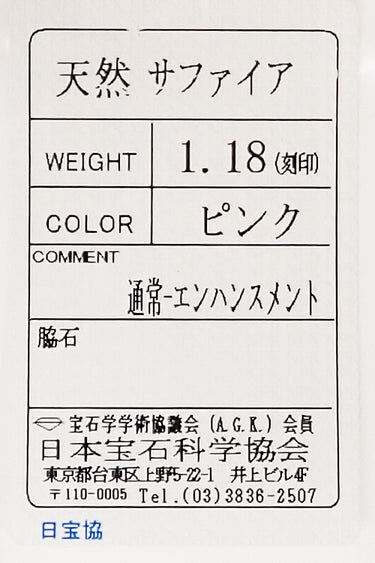 天然 サファイア
WEIGHT 1.18(刻印)
COLOR ピンク
COMMENT
通常-エンハンスメント
脇石
宝石学学術協議会 (A.G.K.) 会員
日本宝石科学協会
東京都台東区上野5-22-1 井上ビル4F
〒110-0005 Tel.(03)3836-2507
日宝協